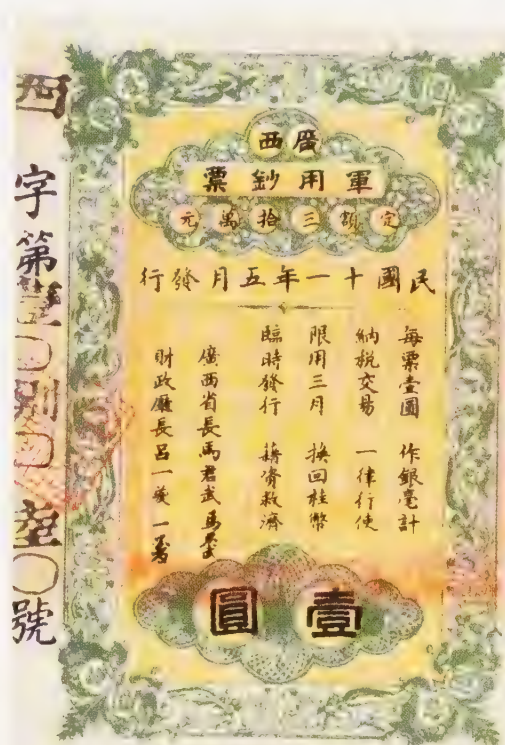 廣西
軍用鈔票
定額三拾萬元
民國十一年五月發行
每票壹圓 作銀毫計
納稅交易 一律行使
限用三月 換回桂幣
臨時發行 藉資救濟
廣西省長馬君武
財政廳長呂一夔
壹圓
字第
號